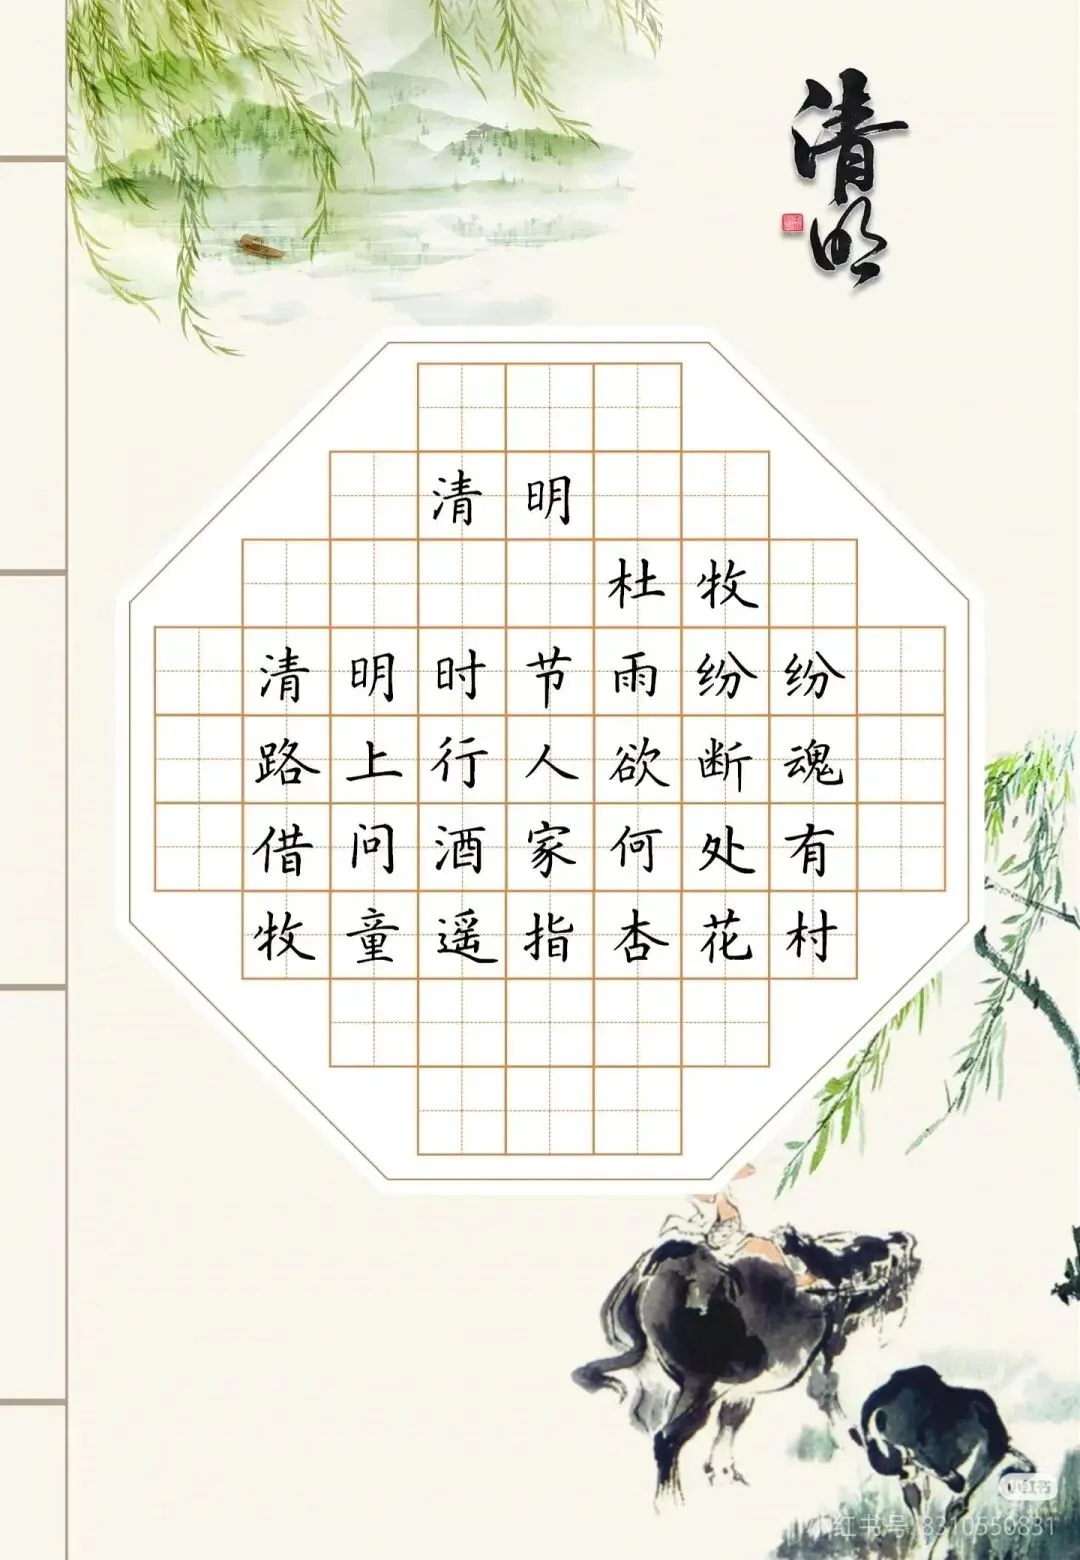 清明
清明
杜牧
清明时节雨纷纷
路上行人欲断魂
借问酒家何处有
牧童遥指杏花村
小红书
小红书号 8310550831